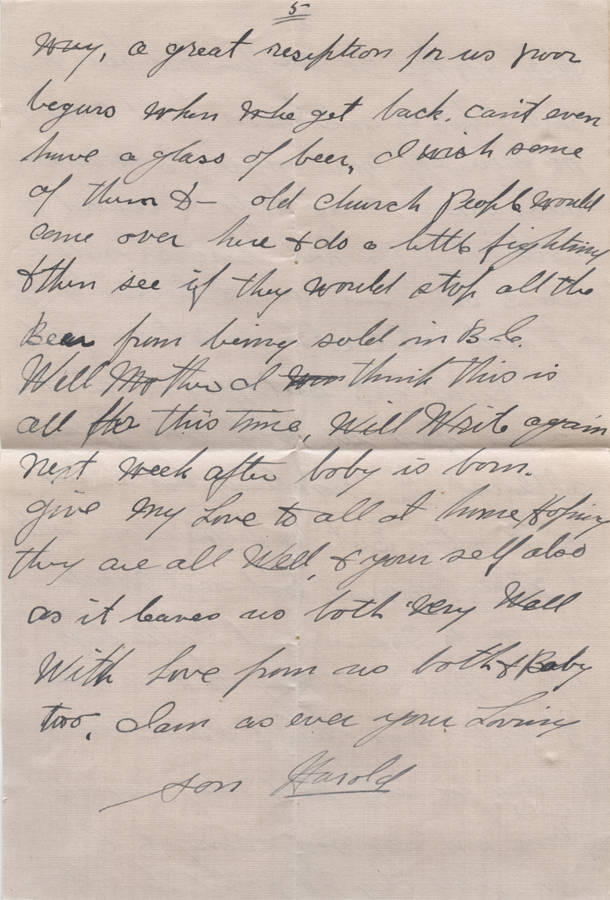 5
Way, a great reseption for us poor
begurs when whe get back. can't even
have a glass of beer, I wish some
of them D- old church People would
come over here & do a little fighting
& then see if they would stop all the
Beer from being sold in B.C.
Well Mother I think this is
all for this time, Will Write again
next week after baby is born.
give my Love to all at home, Hoping
they are all Well, & your self also
as it leaves us both very Well
With Love from us both & Baby
too, I am as ever your Loving
son Harold